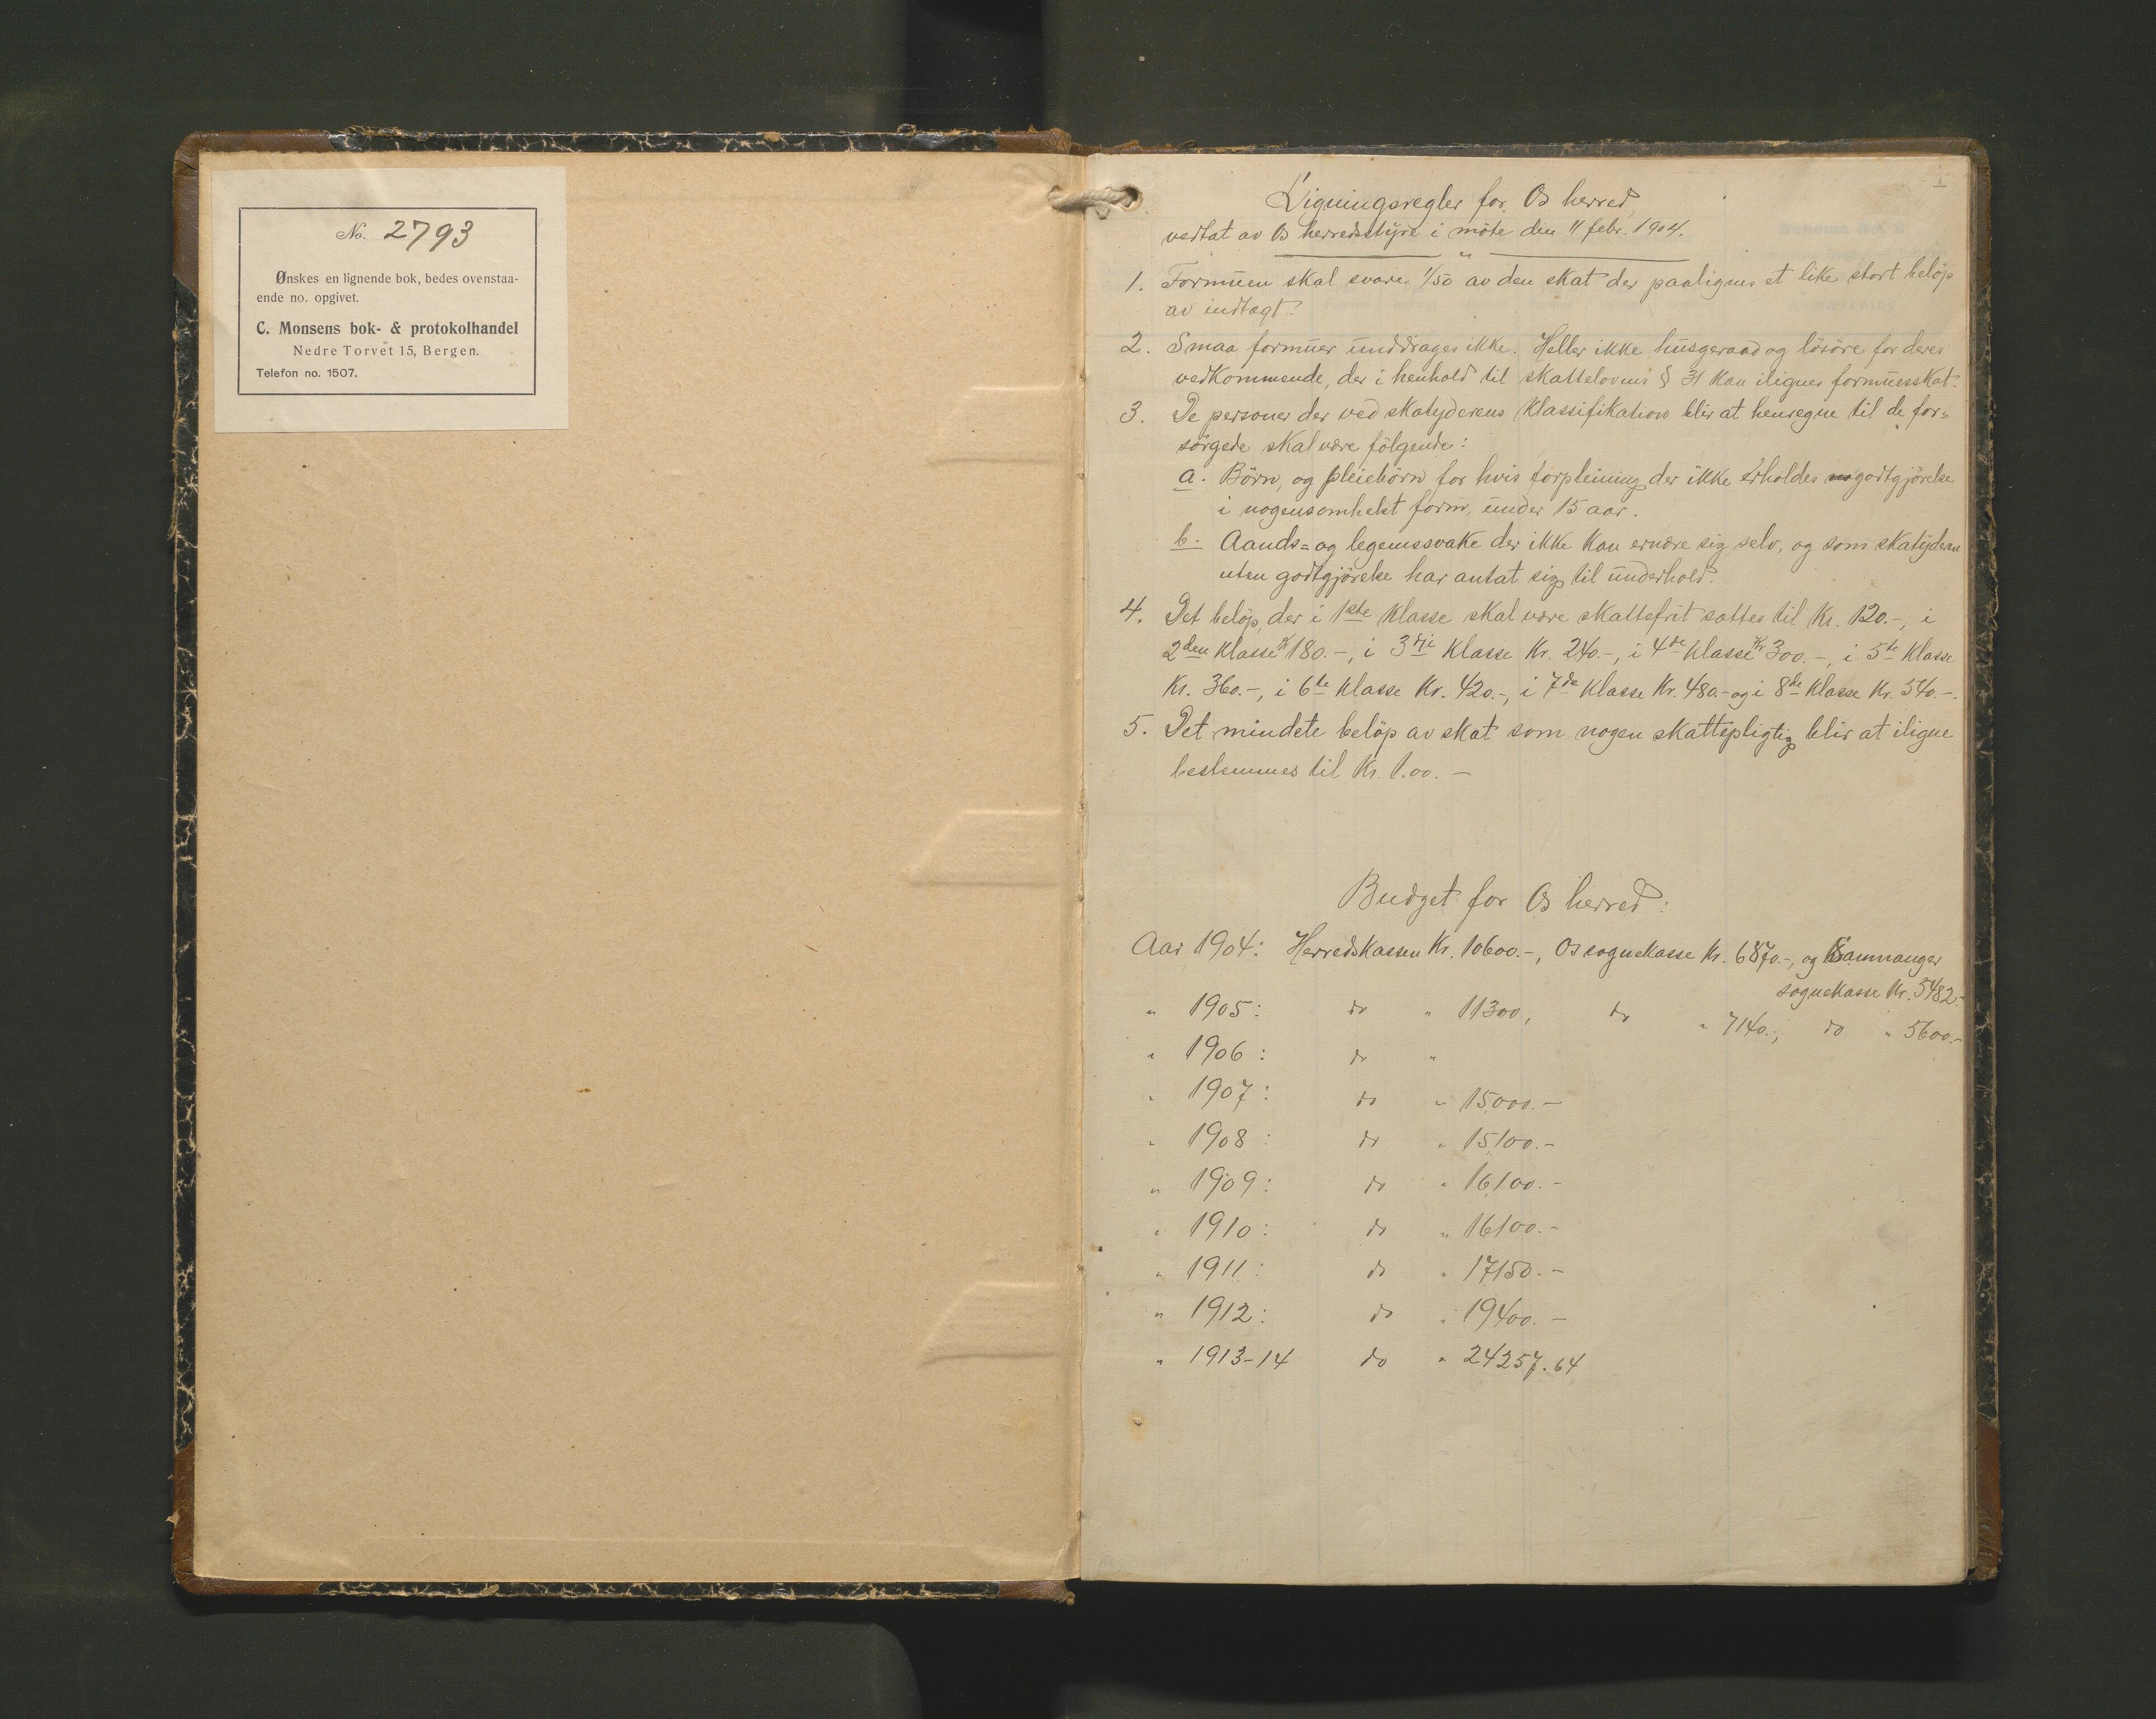 No. 2793
Ønskes en lignende bok, bedes ovenstaa-
ende no. opgivet.
C. Monsens bok- & protokolhandel
Nedre Torvet 15, Bergen.
Telefon no. 1507.
Ligningsregler for Os herred
vedtat av Os herredsstyre i möte den 11 febr. 1904.
1. Formuen skal svare 1/50 av den skat der paalignes et like stort belöp
av indtægt.
2. Smaa formuer unddrages ikke. Heller ikke husgeraad og lösöre for deres
vedkommende, der i henhold til skattelovens § 31 kan ilignes formuesskat.
3. De personer der ved skatyderens klassifikation blir at henregne til de for-
sörgede skal være fölgende:
a. Börn, og pleiebörn for hvis forpleining der ikke erholdes godtgjörelse
i nogensomhelst form, under 15 aar.
b. Aands- og legemssvake der ikke kan ernære sig selv, og som skatyderen
uten godtgjörelse har antat sig til underhold.
4. Det belöp, der i 1ste klasse skal være skattefrit sættes til Kr. 120.-, i
2den klasse Kr 180.-, i 3dje klasse Kr. 240.-, i 4de klasse Kr 300.-, i 5te klasse
Kr. 360.-, i 6te klasse Kr. 420.-, i 7de klasse Kr. 480.- og i 8de klasse Kr. 540.-.
5. Det mindste belöp av skat som nogen skattepligtig blir at iligne
bestemmes til Kr. 1.00.-
Budget for Os herred:
Aar 1904: Herredskassen Kr. 10600.-, Os sognekasse Kr. 6870.-, og Samnanger
sognekasse Kr. 5482.-
" 1905: do " 11300, do " 7140.-, do " 5600.-
" 1906: do "
" 1907: do " 15000.-
" 1908: do " 15100.-
" 1909: do " 16100.-
" 1910: do " 16100.-
" 1911: do " 17150.-
" 1912: do " 19400.-
" 1913-14 do " 24257.64